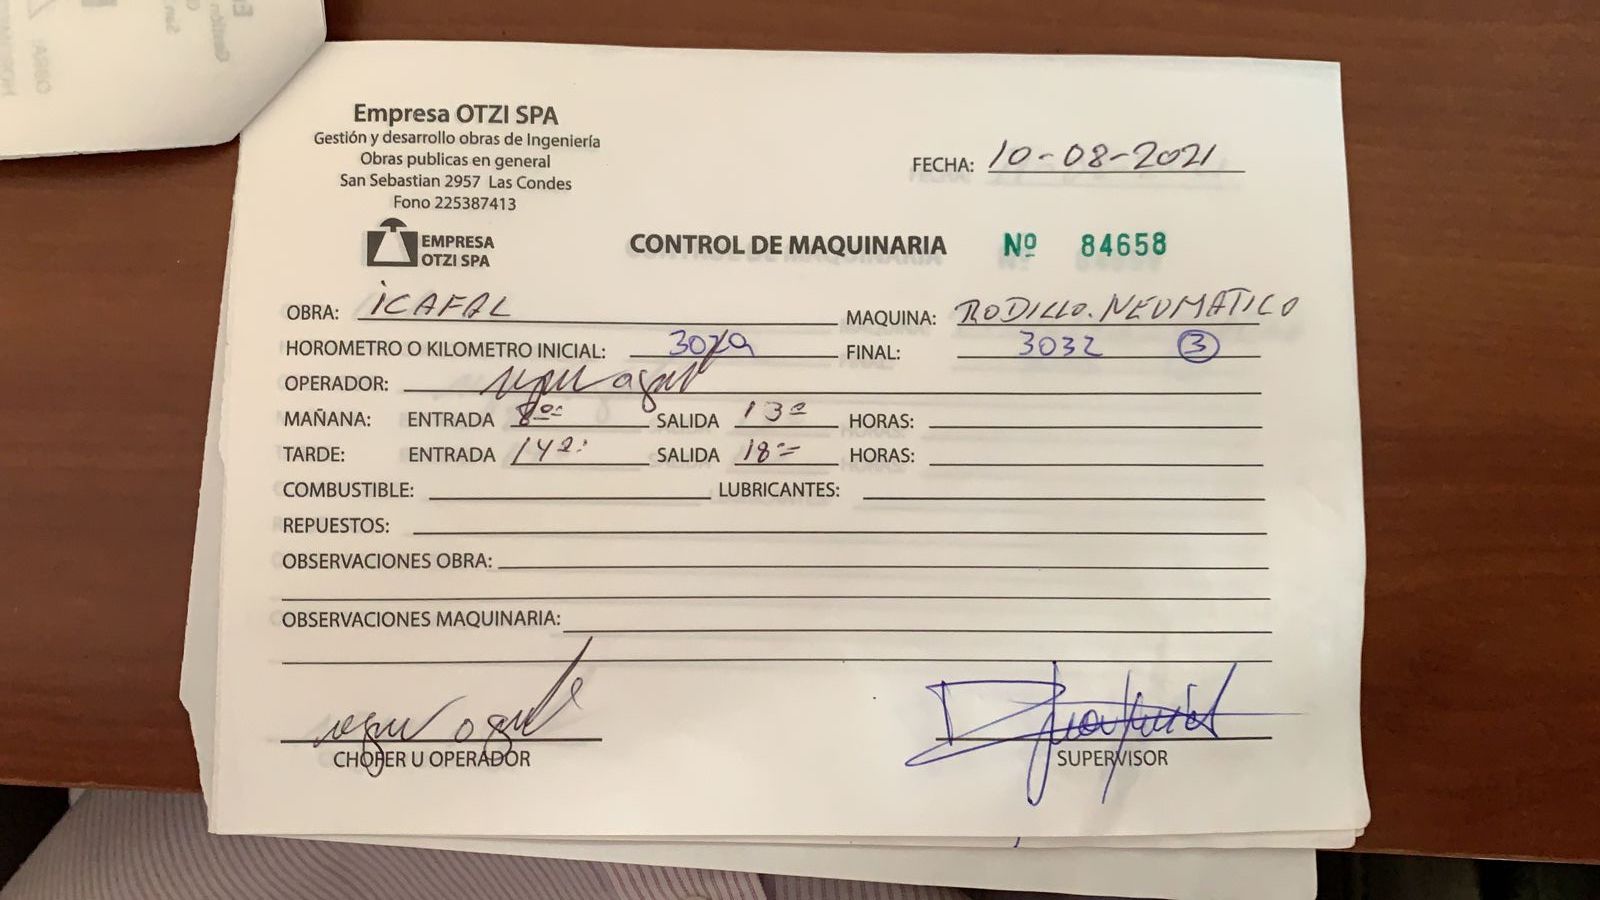 Empresa OTZI SPA
Gestión y desarrollo obras de Ingeniería
Obras publicas en general
San Sebastian 2957 Las Condes
Fono 225387413
FECHA: 10-08-2021
EMPRESA
OTZI SPA
CONTROL DE MAQUINARIA Nº 84658
OBRA: ICAFAL MAQUINA: RODILLO.NEUMATICO
HOROMETRO O KILOMETRO INICIAL: 3029 FINAL: 3032 3
OPERADOR:
MAÑANA: ENTRADA 8 SALIDA 13 HORAS:
TARDE: ENTRADA 14 SALIDA 18 HORAS:
COMBUSTIBLE: LUBRICANTES:
REPUESTOS:
OBSERVACIONES OBRA:
OBSERVACIONES MAQUINARIA:
CHOFER U OPERADOR SUPERVISOR